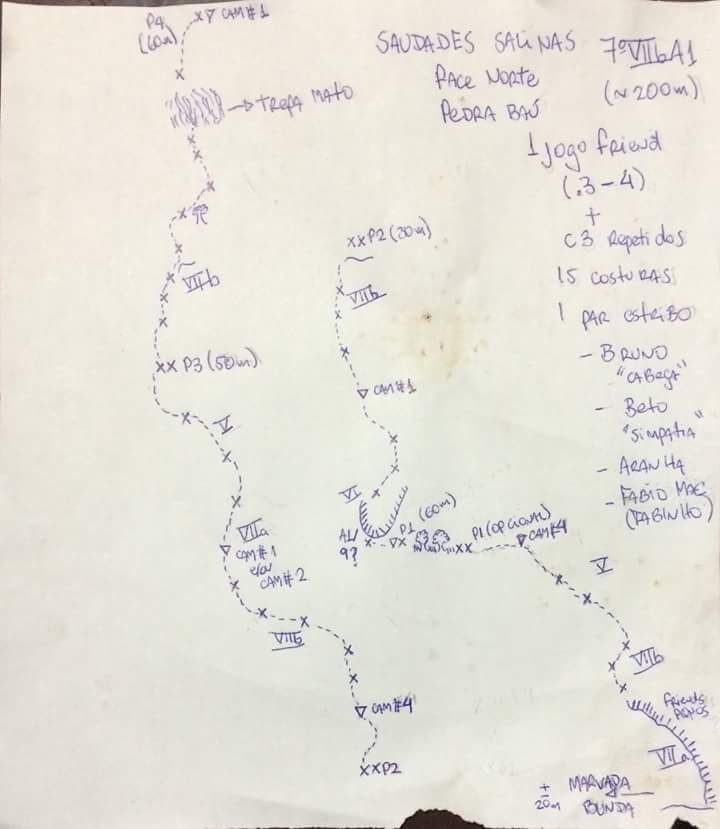 SAUDADES SALINAS 7º VIIb A1
FACE NORTE (~200m)
PEDRA BAÚ
1 jogo friend
(.3-4)
+
C3 Repetidos
15 COSTURAS
1 PAR ESTRIBO
- BRUNO
"CABEÇA"
- Beto
"SIMPATIA"
- ARANHA
- FABIO MAC
(FABINHO)
P4
(60m)
CAM#1
TREPA MATO
VIIb
P3 (50m)
V
VIIa
CAM#1
e/ou
CAM#2
VIIb
CAM#4
P2
P2 (30m)
VIIb
CAM#1
VI
A1/
9?
P1
(60m)
P1 (OPCIONAL)
CAM#4
V
VIIb
Friends
VIIa
±
20m
MARVADA
BUNDA